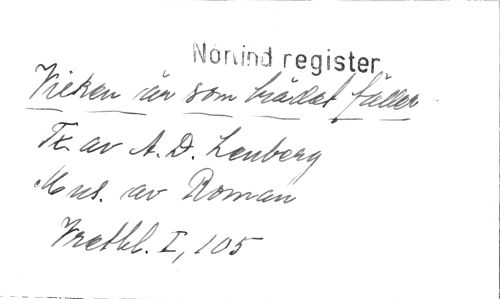 Norlind register
Vicken är som brådat fäller
Tx. av A. D. Lenberg
Mus. av Roman
Vretbl. I, 105